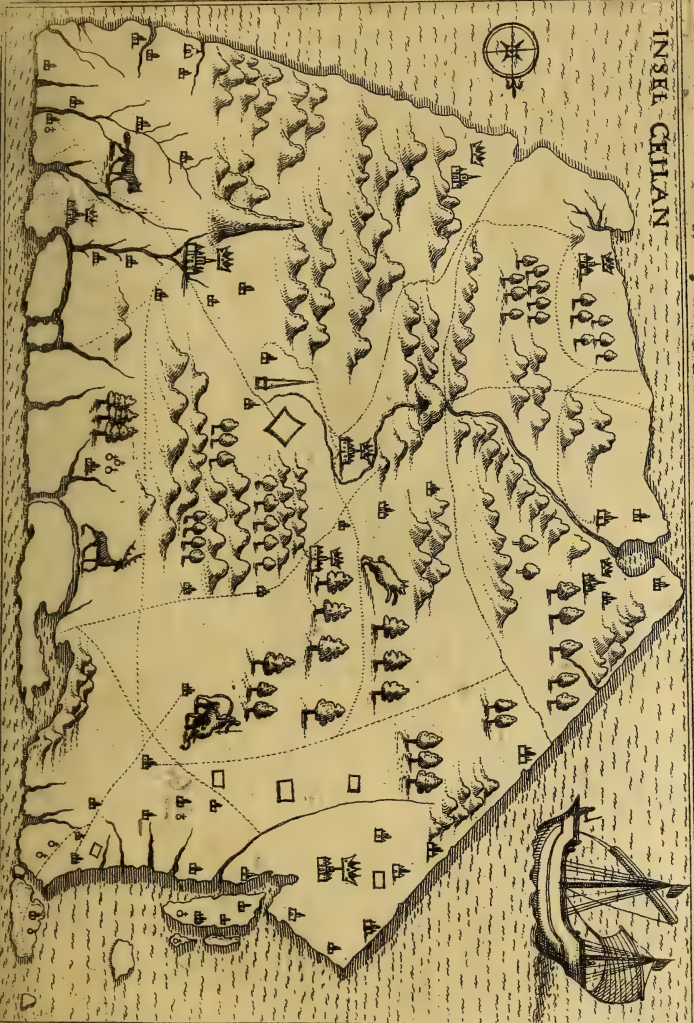 INSEL CEILAN